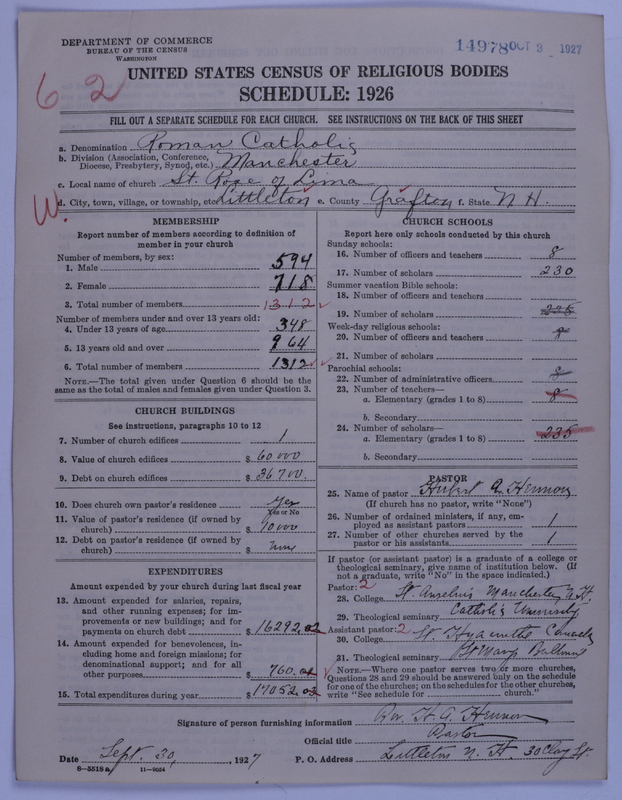 DEPARTMENT OF COMMERCE
BUREAU OF THE CENSUS
WASHINGTON
14978 OCT 3 1927
62
UNITED STATES CENSUS OF RELIGIOUS BODIES
SCHEDULE: 1926
FILL OUT A SEPARATE SCHEDULE FOR EACH CHURCH. SEE INSTRUCTIONS ON THE BACK OF THIS SHEET
a. Denomination Roman Catholic
b. Division (Association, Conference, Diocese, Presbytery, Synod, etc.) Manchester
c. Local name of church St. Rose of Lima
W.
d. City, town, village, or township, etc. Littleton e. County Grafton f. State N H.
MEMBERSHIP
Report number of members according to definition of
member in your church
Number of members, by sex:
1. Male 594
2. Female 718
3. Total number of members 1312
Number of members under and over 13 years old:
4. Under 13 years of age 348
5. 13 years old and over 964
6. Total number of members 1312
NOTE.—The total given under Question 6 should be
same as the total of males and females given under Question 3.
CHURCH BUILDINGS
See instructions, paragraphs 10 to 12
7. Number of church edifices 1
8. Value of church edifices $ 60000
9. Debt on church edifices $ 36700.
10. Does church own pastor's residence Yes
Yes or No
11. Value of pastor's residence (if owned by
church) $ 10000
12. Debt on pastor's residence (if owned by
church) $ None
EXPENDITURES
Amount expended by your church during last fiscal year
13. Amount expended for salaries, repairs,
and other running expenses; for im-
provements or new buildings; and for
payments on church debt $ 16292.02
14. Amount expended for benevolences, in-
cluding home and foreign missions; for
denominational support; and for all
other purposes $ 760.01
15. Total expenditures during year $ 17052.03
CHURCH SCHOOLS
Report here only schools conducted by this church
Sunday schools:
16. Number of officers and teachers 8
17. Number of scholars 230
Summer vacation Bible schools:
18. Number of officers and teachers
19. Number of scholars 225
Week-day religious schools:
20. Number of officers and teachers
21. Number of scholars
Parochial schools:
22. Number of administrative officers 8
23. Number of teachers—
a. Elementary (grades 1 to 8) 8
b. Secondary
24. Number of scholars—
a. Elementary (grades 1 to 8) 235
b. Secondary
PASTOR
25. Name of pastor Herbert A. Hennon
(If church has no pastor, write "None")
26. Number of ordained ministers, if any, em-
ployed as assistant pastors 1
27. Number of other churches served by the
pastor or his assistants 1
If pastor (or assistant pastor) is a graduate of a college or
theological seminary, give name of institution below. (If
not a graduate, write "No" in the space indicated.)
Pastor: 2
28. College St Anselms Manchester N.H.
29. Theological seminary Catholic University
Assistant pastor: 2
30. College St Hyacinthe Canada
31. Theological seminary St Mary
NOTE.—Where one pastor serves two or more churches,
Questions 28 and 29 should be answered only on the schedule
for one of the churches; on the schedules for the other churches,
write "See schedule for church."
Signature of person furnishing information Rev. H. A. Hennon
Official title Pastor
Date Sept. 30, 1927 P. O. Address Littleton N. H. 30 Clay St.
8—5518a 11—9524